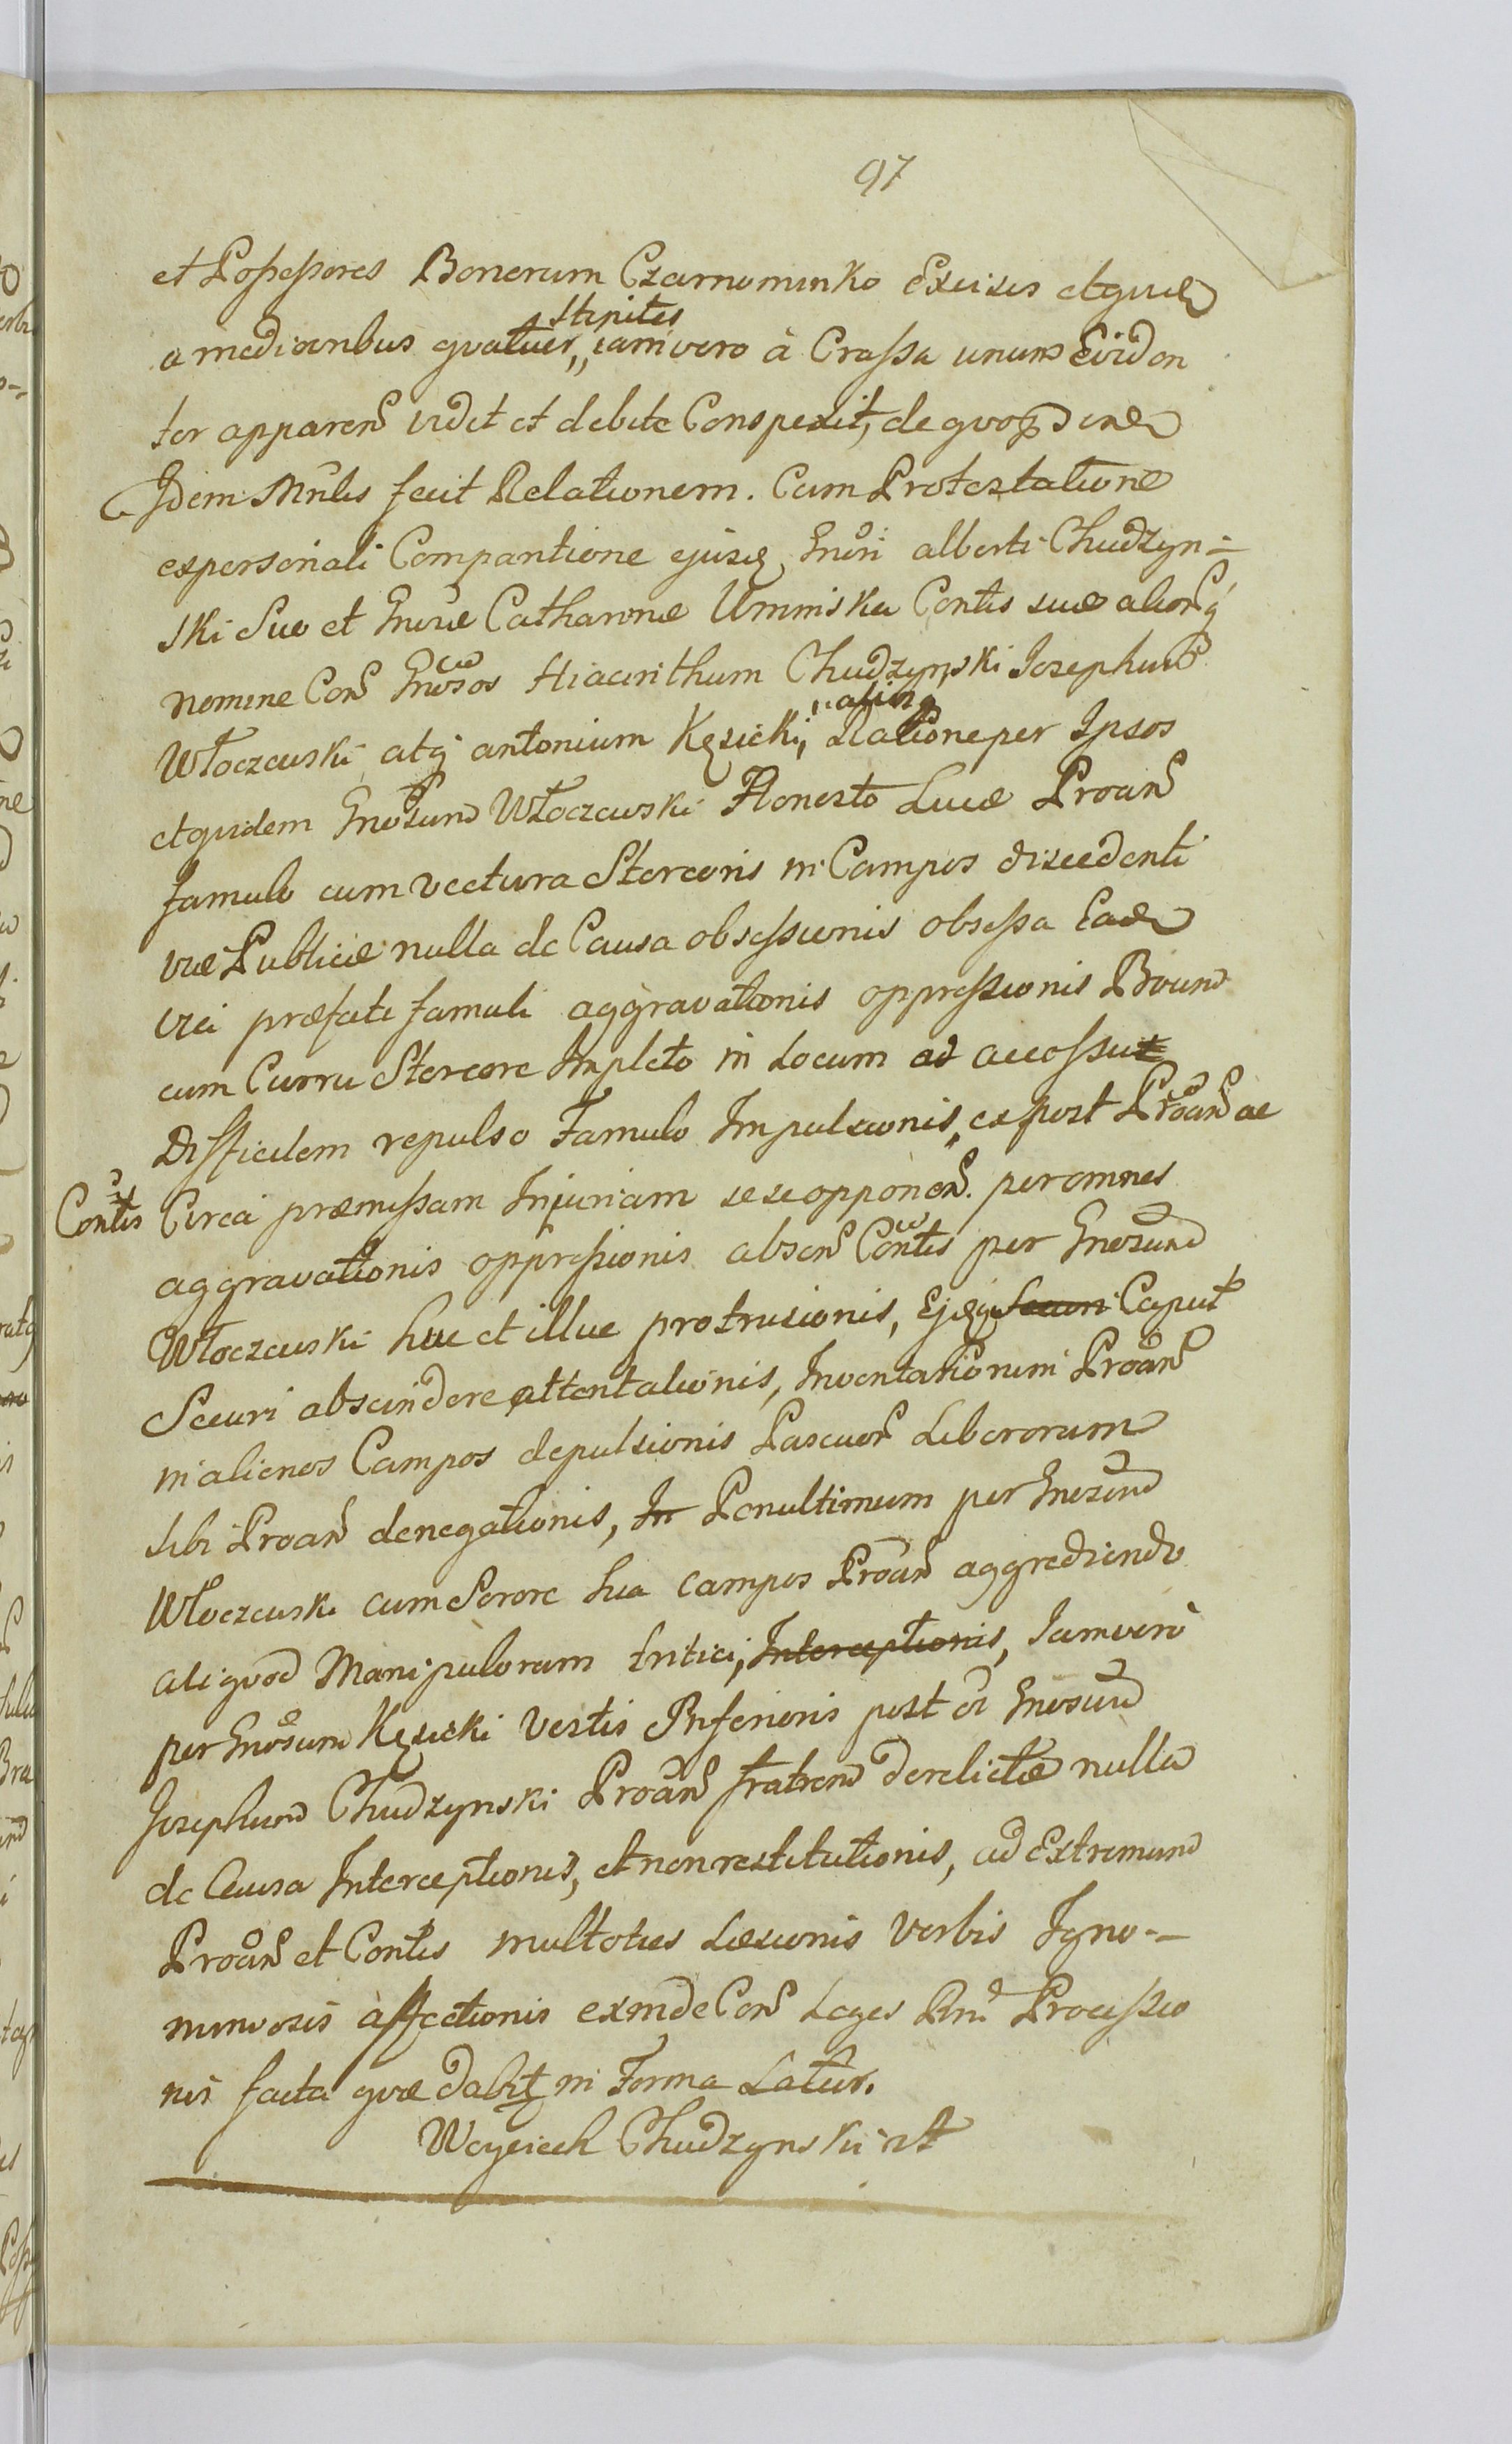 97
et Possessores Bonorum Czarnominko Excisis etquid
stipites
a mediocribus quatuor,, iamvero à Crassa unum Eviden
ter apparen vidit et debite Conspexit, de quo
Idem Mnlis fecit Relationem. Cum Protestatione
expersonali Comparitione ejusq Gnosi alberti Chudzyn=
ski Suo et Gnosae Catharinae Uminska Contis suae aliorq
nomine Con Gnosos Hiacinthum Chudzynski Josephum
Włoczewski atq antonium Kęsicki,
Ratione per Ipsos
etquidem Gnosum Włoczewski Honesto Lucae Proan
famulo cum vectura Stercoris in Campos discedenti
viae Publicae nulla de Causa obsessionis obsessa Ead
via praefati famuli aggravationis oppressionis Boum
cum Curru Stercore Impleto in Locum ad accessu
Difficilem repulso Famulo Impulsionis,, expost Proan ac
Contis Circa praemissam Injuriam sese opponen. per omnes
aggravationis oppressionis absen Contis per Gnosum
Włoczewski huc et illuc protrusionis, Ejusq Securi Caput
Securi abscindere attentationis, Inventariorum Proan
in alienos Campos depulsionis Pascuor Liberorum
sibi Proan denegationis, In Penultimum per Gnosum
Włoczewski cum Sorore sua campos Proan aggrediendo
aliquod Manipulorum tritici, Interceptionis, Jamvero
per Gnosum Kęsicki Vestis Inferioris post Gnosum
Josephum Chudzynski Proan fratrem derelictae nulla
de Causa Interceptionis, et non restitutionis, ad Extremum
Proan et Contis multoties Laesionis Verbis Igno=
miniosis affectionis exinde Con Leges Rni Processio
nis facta quae dabit in Forma Latur.
Woyciech Chudzynski